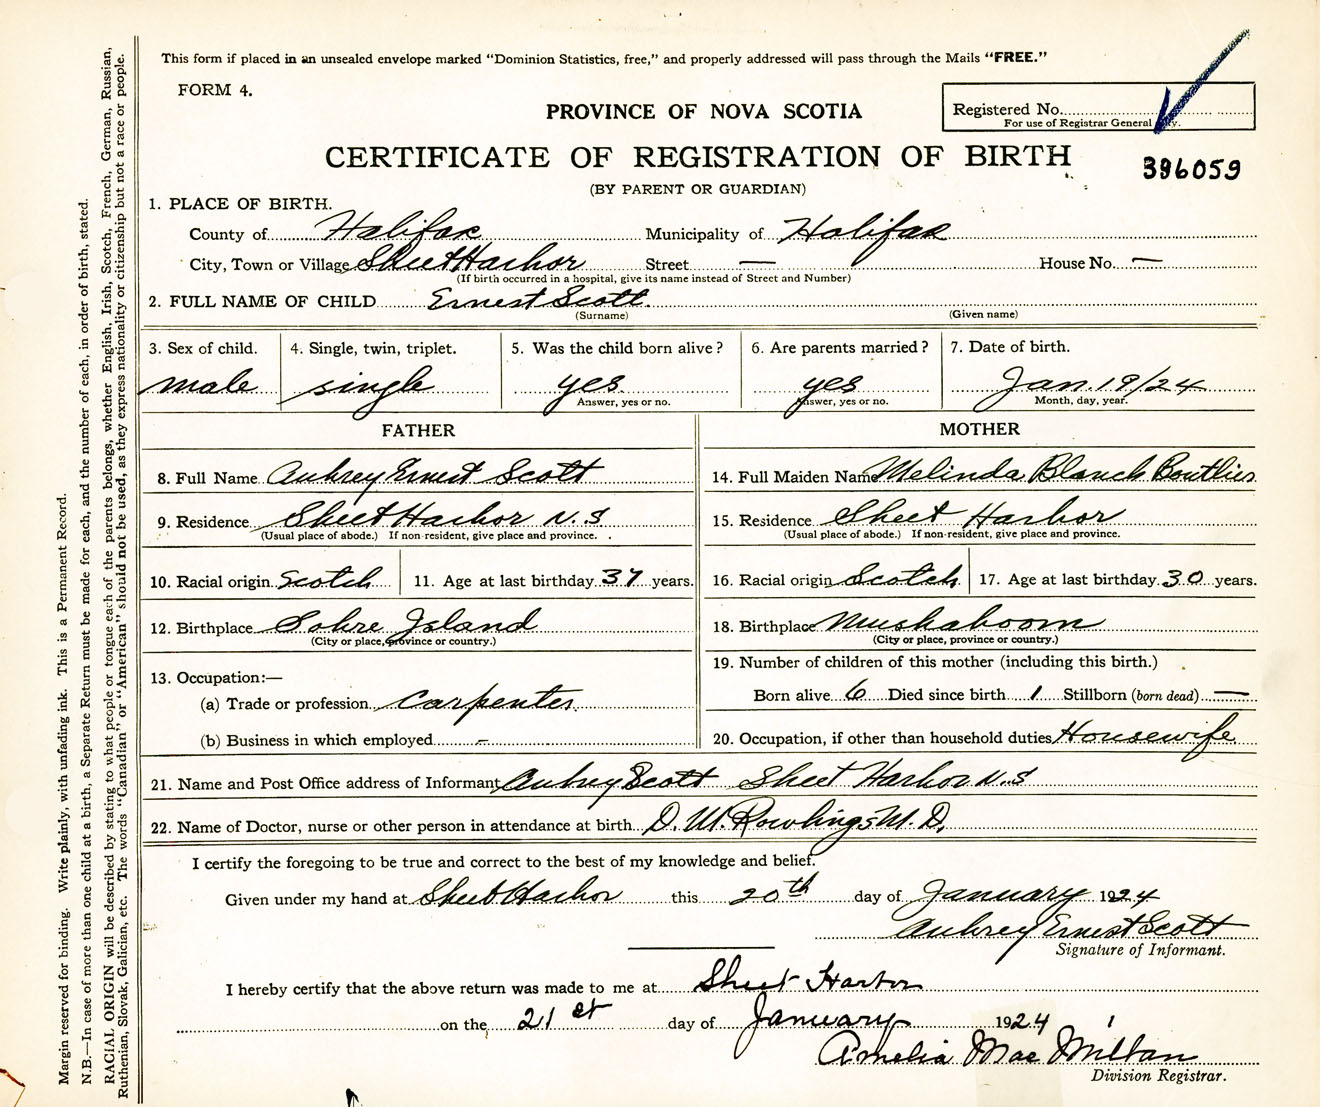 This form if placed in an unsealed envelope marked "Dominion Statistics, free," and properly addressed will pass through the Mails "FREE."
FORM 4.
PROVINCE OF NOVA SCOTIA
Registered No.
For use of Registrar General
CERTIFICATE OF REGISTRATION OF BIRTH
396059
(BY PARENT OR GUARDIAN)
1. PLACE OF BIRTH.
County of Halifax Municipality of Halifax
City, Town or Village Sheet Harbor Street — House No. —
(If birth occurred in a hospital, give its name instead of Street and Number)
2. FULL NAME OF CHILD Ernest Scott.
(Surname) (Given name)
3. Sex of child. 4. Single, twin, triplet. 5. Was the child born alive? 6. Are parents married? 7. Date of birth.
male single yes yes Jan. 19/24
Answer, yes or no. Answer, yes or no. Month, day, year.
FATHER MOTHER
8. Full Name Aubrey Ernest Scott 14. Full Maiden Name Melinda Blanch Boutlier
9. Residence Sheet Harbor N.S 15. Residence Sheet Harbor
(Usual place of abode.) If non-resident, give place and province. (Usual place of abode.) If non-resident, give place and province.
10. Racial origin Scotch 11. Age at last birthday 37 years. 16. Racial origin Scotch 17. Age at last birthday 30 years.
12. Birthplace Island 18. Birthplace Mushaboom
(City or place, province or country.) (City or place, province or country.)
19. Number of children of this mother (including this birth.)
13. Occupation:—
(a) Trade or profession Carpenter Born alive 6 Died since birth 1 Stillborn (born dead) —
(b) Business in which employed - 20. Occupation, if other than household duties Housewife
21. Name and Post Office address of Informant Aubrey Scott Sheet Harbor N.S
22. Name of Doctor, nurse or other person in attendance at birth D. W. Rowlings M.D.
I certify the foregoing to be true and correct to the best of my knowledge and belief.
Given under my hand at Sheet Harbor this 20th day of January 1924
Aubrey Ernest Scott
Signature of Informant.
I hereby certify that the above return was made to me at Sheet Harbor
on the 21st day of January 1924
Amelia Mac Millan
Division Registrar.
Margin reserved for binding. Write plainly, with unfading ink. This is a Permanent Record.
N.B.—In case of more than one child at a birth, a Separate Return must be made for each, and the number of each, in order of birth, stated.
RACIAL ORIGIN will be described by stating to what people or tongue each of the parents belongs, whether English, Irish, Scotch, French, German, Russian,
Ruthenian, Slovak, Galician, etc. The words "Canadian" or "American" should not be used, as they express nationality or citizenship but not a race or people.